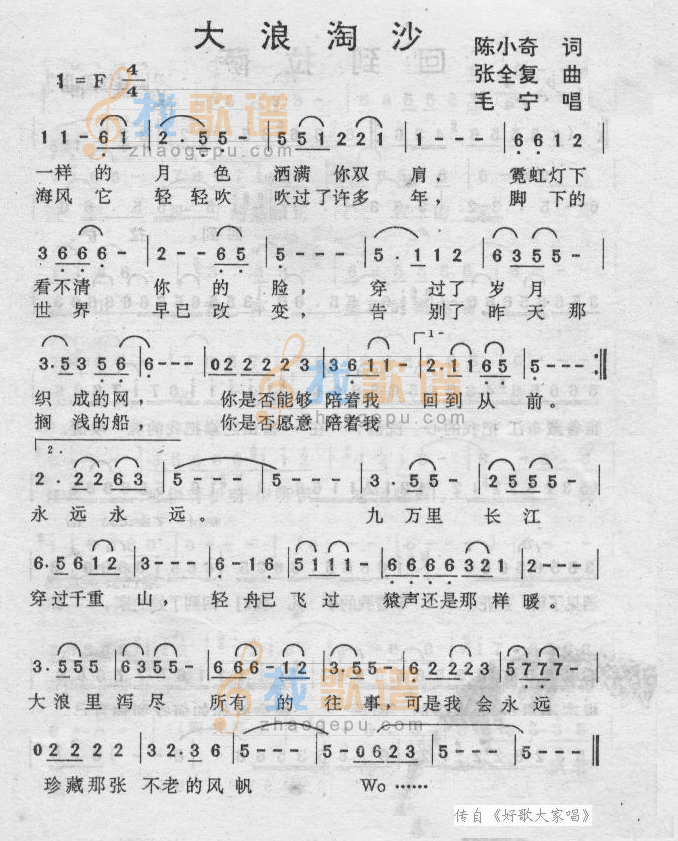 大浪淘沙
陈小奇 词
1=F 4/4
张全复 曲
毛宁 唱
找歌谱
zhaogepu.com
1 1 - 6 1 | 2 · 5 5 - | 5 5 1 2 2 1 | 1 - - - | 6 6 1 2
一样的 月 色 洒满你双 肩， 霓虹灯下
海风它 轻轻吹 吹过了许多 年， 脚下的
3 6 6 6 - | 2 - - 6 5 | 5 - - - | 5 · 1 1 2 | 6 3 5 5 -
看不清 你 的 脸， 穿 过了岁月
世界 早已改 变， 告 别了昨天那
3 · 5 3 5 5 6 | 6 - - - | 0 2 2 2 2 2 3 | 3 6 1 1 | 2 · 1 1 6 5 | 5 - - - :‖
织成的网， 你是否能够陪着我 回到从 前。
搁浅的船， 你是否愿意陪着我
找歌谱
zhaogepu.com
2 · 2 2 6 3 | 5 - - - | 5 - - - | 3 · 5 5 5 | 2 5 5 5 -
永远永 远。 九万里长江
6 · 5 6 1 2 | 3 - - - | 6 - 1 6 | 5 1 1 1 - | 6 6 6 6 6 3 2 1 | 2 - - -
穿过千重 山， 轻舟已飞过 猿声还是那样暖。
3 · 5 5 5 | 6 3 5 5 - | 6 6 6 - 1 2 | 3 · 5 5 - | 6 2 2 2 3 | 5 7 7 7 -
大浪里泻尽 所有 的 往事，可是我会永远
找歌谱
zhaogepu.com
0 2 2 2 2 | 3 2 · 3 6 | 5 - - - | 5 - 0 6 2 3 | 5 - - - | 5 - - - ‖
珍藏那张 不老的风帆 Wo ……
传自《好歌大家唱》